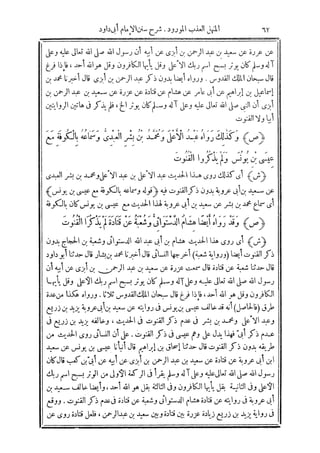 ٦٢ المنهل العذب المورود . شرح سنن الإمام أبى داود
عن عزرة عن سعيد بن عبد الرحمن بن أبزى عن أبيه أن رسول الله صلى الله تعالى عليه وعلى
آله وسلم كان يوتر بسبح اسم ربك الأعلى وقل يأيها الكافرون وقل هو الله أحد ، فإذا فرغ
قال سبحان الملك القدوس . ورواه أيضا بدون ذكر عبد الرحمن بن أبزى قال أخبرنا محمد بن
إسماعيل بن إبراهيم عن أبى عامر عن هشام عن قتادة عن عزرة عن سعيد بن عبد الرحمن بن
أبزى أن النبى صلى الله تعالى عليه وعلى آله وسلم كان يوتر الخ ، فلم يذكر فى هاتين الروايتين
أبيا ولا القنوت
﴿ص﴾ وَكَذَلِكَ رَوَاهُ عَبْدُ الْأَعْلَى وَمُحَمَّدُ بْنُ بِشْرٍ الْعَبْدِىُّ وَسَمَاعُهُ بِالْكُوفَةِ مَعَ
عِيسَى بْنِ يُونُسَ وَلَمْ يَذْكُرُوا الْقُنُوتَ
﴿ش﴾ أى كذلك روى هذا الحديث عبد الأعلى بن عبد الأعلى ومحمد بن بشر العبدى
عن سعيد بن أبى عروبة بدون ذكر القنوت فيه ﴿قوله وسماعه بالكوفة مع عيسى بن يونس﴾
أى سماع محمد بن بشر عن سعيد بن أبى عروبة لهذا الحديث مع عيسى بن يونس كان بالكوفة
﴿ص﴾ وَقَدْ رَوَاهُ أَيْضًا هِشَامٌ الدَّسْتَوَائِىُّ وَشُعْبَةُ عَنْ قَتَادَةَ لَمْ يَذْكُرَا الْقُنُوتَ
﴿ش﴾ أى روى هذا الحديث هشام بن أبى عبد الله الدستوائى وشعبة بن الحجاج بدون
ذكر القنوت أيضا ﴿ورواية شعبة﴾ أخرجها النسائى قال أخبرنا محمد بن بشار قال حدثنا أبو داود
قال حدثنا شعبة عن قتادة قال سمعت عزرة عن سعيد بن عبد الرحمن بن أبزى عن أبيه أن
رسول الله صلى الله تعالى عليه وعلى آله وسلم كان يوتر بسبح اسم ربك الأعلى وقل يأيها
الكافرون وقل هو الله أحد ، فإذا فرغ قال سبحان الملك القدوس ثلاثا . ورواه هكذا من عدة
طرق ﴿فالحاصل﴾ أنه قد خالف عيسى بن يونس فى روايته عن سعيد بن أبى عروبة يزيد بن زريع
وعبد الأعلى ومحمد بن بشر فى عدم ذكر القنوت فى الحديث ، وخالفه يزيد بن زريع فى
عدم ذكر أبىّ فهذا يدل على وهم عيسى فى ذكر القنوت . على أن النسائى روى الحديث من
طريقه بدون ذكر القنوت قال حدثنا إسحاق بن إبراهيم قال أنبأنا عيسى بن يونس عن سعيد
ابن أبى عروبة عن قتادة عن سعيد بن عبد الرحمن بن أبزى عن أبيه عن أبىّ بن كعب قال كان
رسول الله صلى الله تعالى عليه وعلى آله وسلم يقرأ فى الركعة الأولى من الوتر بسبح اسم ربك
الأعلى وفى الثانية بقل يأيها الكافرون وفى الثالثة بقل هو الله أحد ، وأيضا خالف سعيد بن
أبى عروبة فى روايته عن قتادة هشام الدستوائى وشعبة عن قتادة فى عدم ذكر القنوت . ووقع
فى رواية يزيد بن زريع زيادة عزرة بين قتادة وبين سعيد بن عبد الرحمن ، فلعل قتادة روى عن